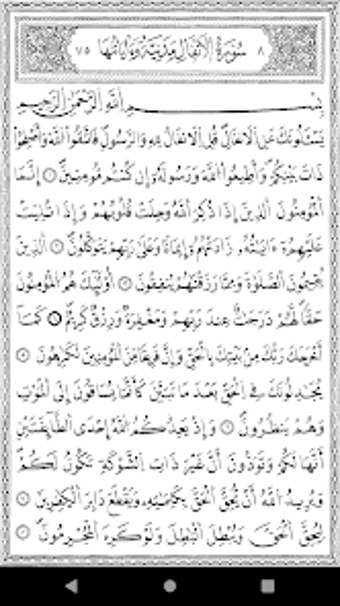 ٨ سُورَةُ الْأَنفَالِ مَدَنِيَّةٌ وَآيَاتُهَا ٧٥
بِسْمِ اللَّهِ الرَّحْمَٰنِ الرَّحِيمِ
يَسْـَٔلُونَكَ عَنِ الْأَنفَالِ قُلِ الْأَنفَالُ لِلَّهِ وَالرَّسُولِ فَاتَّقُوا اللَّهَ وَأَصْلِحُوا
ذَاتَ بَيْنِكُمْ وَأَطِيعُوا اللَّهَ وَرَسُولَهُ إِن كُنتُم مُّؤْمِنِينَ ۝ إِنَّمَا
الْمُؤْمِنُونَ الَّذِينَ إِذَا ذُكِرَ اللَّهُ وَجِلَتْ قُلُوبُهُمْ وَإِذَا تُلِيَتْ
عَلَيْهِمْ ءَايَٰتُهُ زَادَتْهُمْ إِيمَانًا وَعَلَىٰ رَبِّهِمْ يَتَوَكَّلُونَ ۝ الَّذِينَ
يُقِيمُونَ الصَّلَوٰةَ وَمِمَّا رَزَقْنَٰهُمْ يُنفِقُونَ ۝ أُولَٰئِكَ هُمُ الْمُؤْمِنُونَ
حَقًّا لَّهُمْ دَرَجَٰتٌ عِندَ رَبِّهِمْ وَمَغْفِرَةٌ وَرِزْقٌ كَرِيمٌ ۝ كَمَا
أَخْرَجَكَ رَبُّكَ مِن بَيْتِكَ بِالْحَقِّ وَإِنَّ فَرِيقًا مِّنَ الْمُؤْمِنِينَ لَكَٰرِهُونَ ۝
يُجَٰدِلُونَكَ فِي الْحَقِّ بَعْدَ مَا تَبَيَّنَ كَأَنَّمَا يُسَاقُونَ إِلَى الْمَوْتِ
وَهُمْ يَنظُرُونَ ۝ وَإِذْ يَعِدُكُمُ اللَّهُ إِحْدَى الطَّائِفَتَيْنِ
أَنَّهَا لَكُمْ وَتَوَدُّونَ أَنَّ غَيْرَ ذَاتِ الشَّوْكَةِ تَكُونُ لَكُمْ
وَيُرِيدُ اللَّهُ أَن يُحِقَّ الْحَقَّ بِكَلِمَٰتِهِ وَيَقْطَعَ دَابِرَ الْكَٰفِرِينَ ۝
لِيُحِقَّ الْحَقَّ وَيُبْطِلَ الْبَٰطِلَ وَلَوْ كَرِهَ الْمُجْرِمُونَ ۝